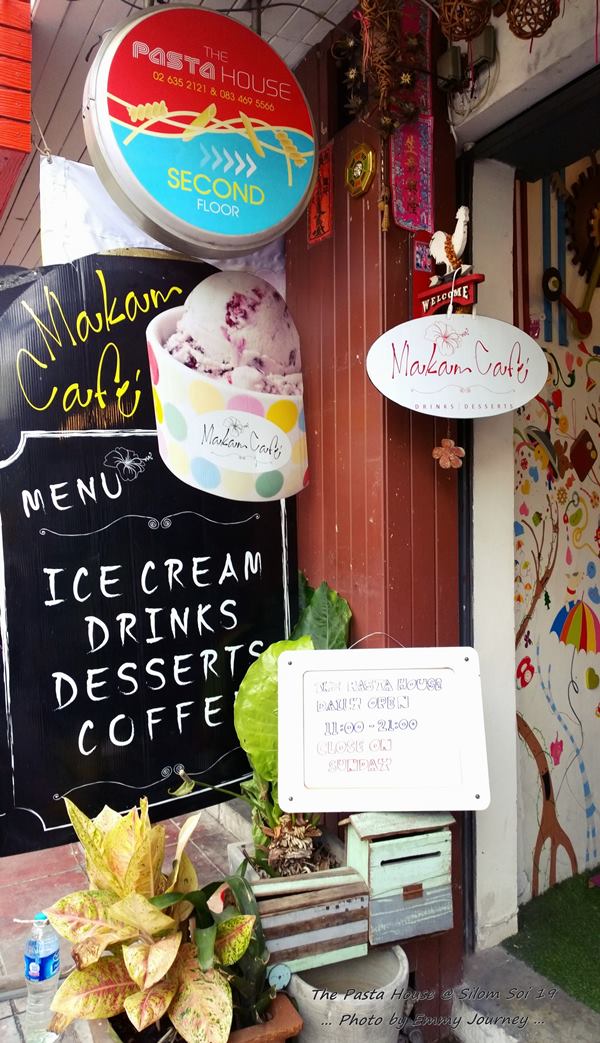 THE
PASTA HOUSE
02 635 2121 & 083 469 5566
SECOND
FLOOR
Makam
Café
Makam Café
MENU
ICE CREAM
DRINKS
DESSERTS
COFFE
WELCOME
Makam Café
DRINKS | DESSERTS
THE PASTA HOUSE
DAILY OPEN
11:00 - 21:00
CLOSE ON
SUNDAY
The Pasta House @ Silom Soi 19
... Photo by Emmy Journey ...